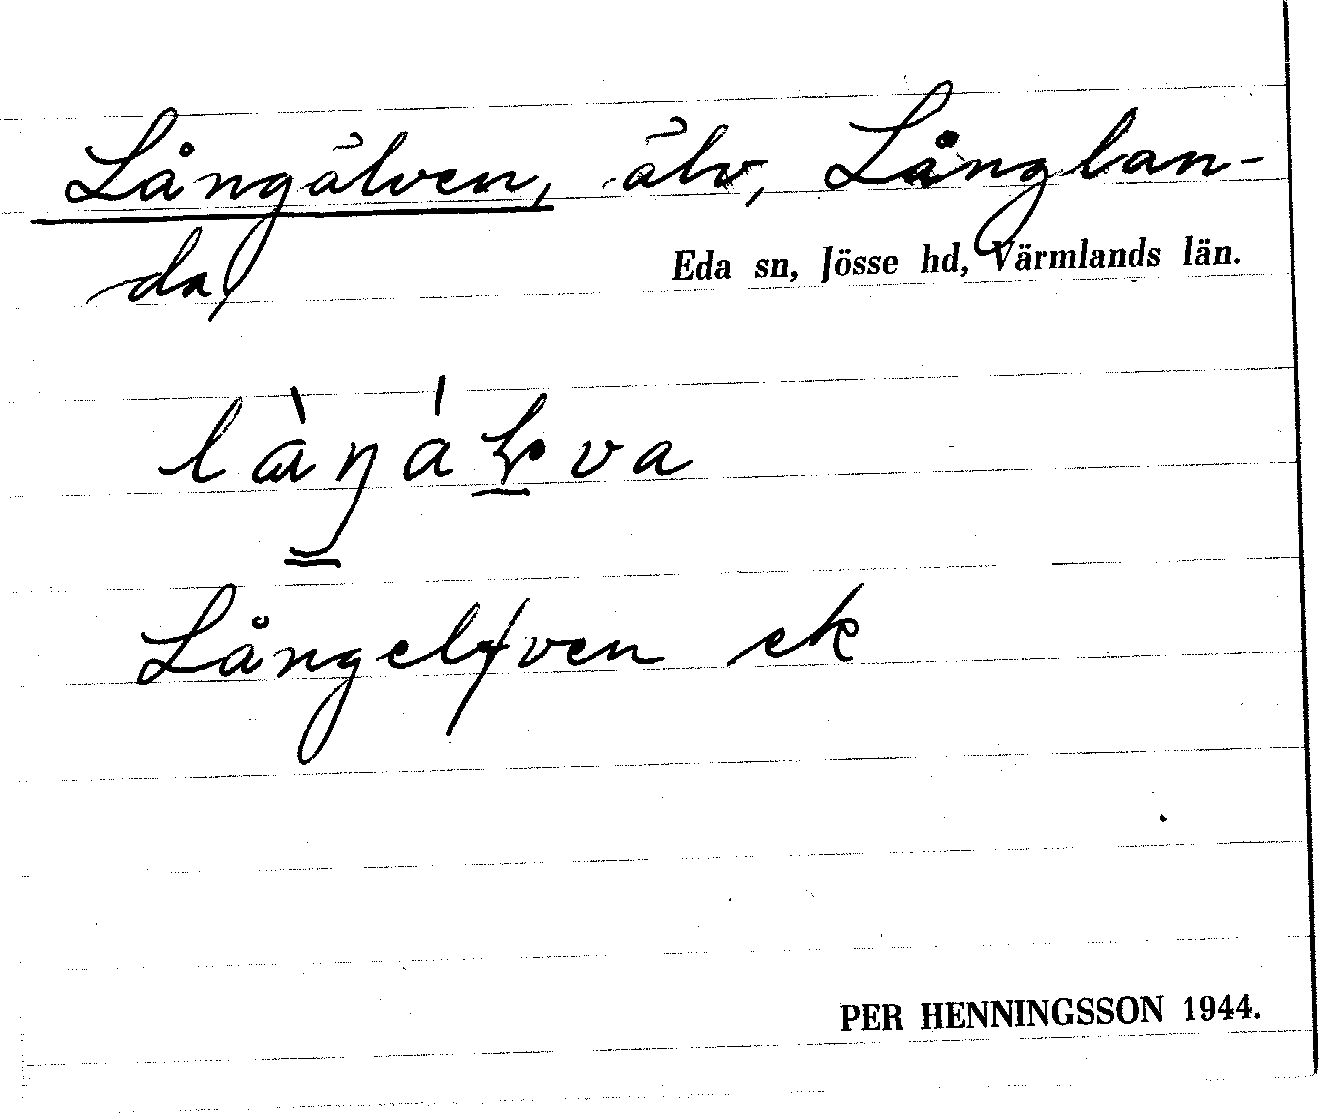 Långälven, älv, Långlan-
da
Eda sn, Jösse hd, Värmlands län.
Långelfven ek
PER HENNINGSSON 1944.